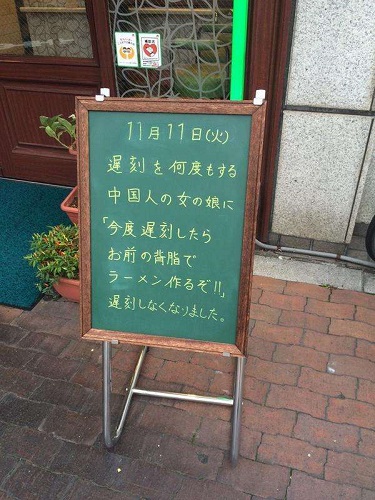 11月11日(火)
遅刻を何度もする
中国人の女の娘に
「今度遅刻したら
お前の背脂で
ラーメン作るぞ!!」
遅刻しなくなりました。